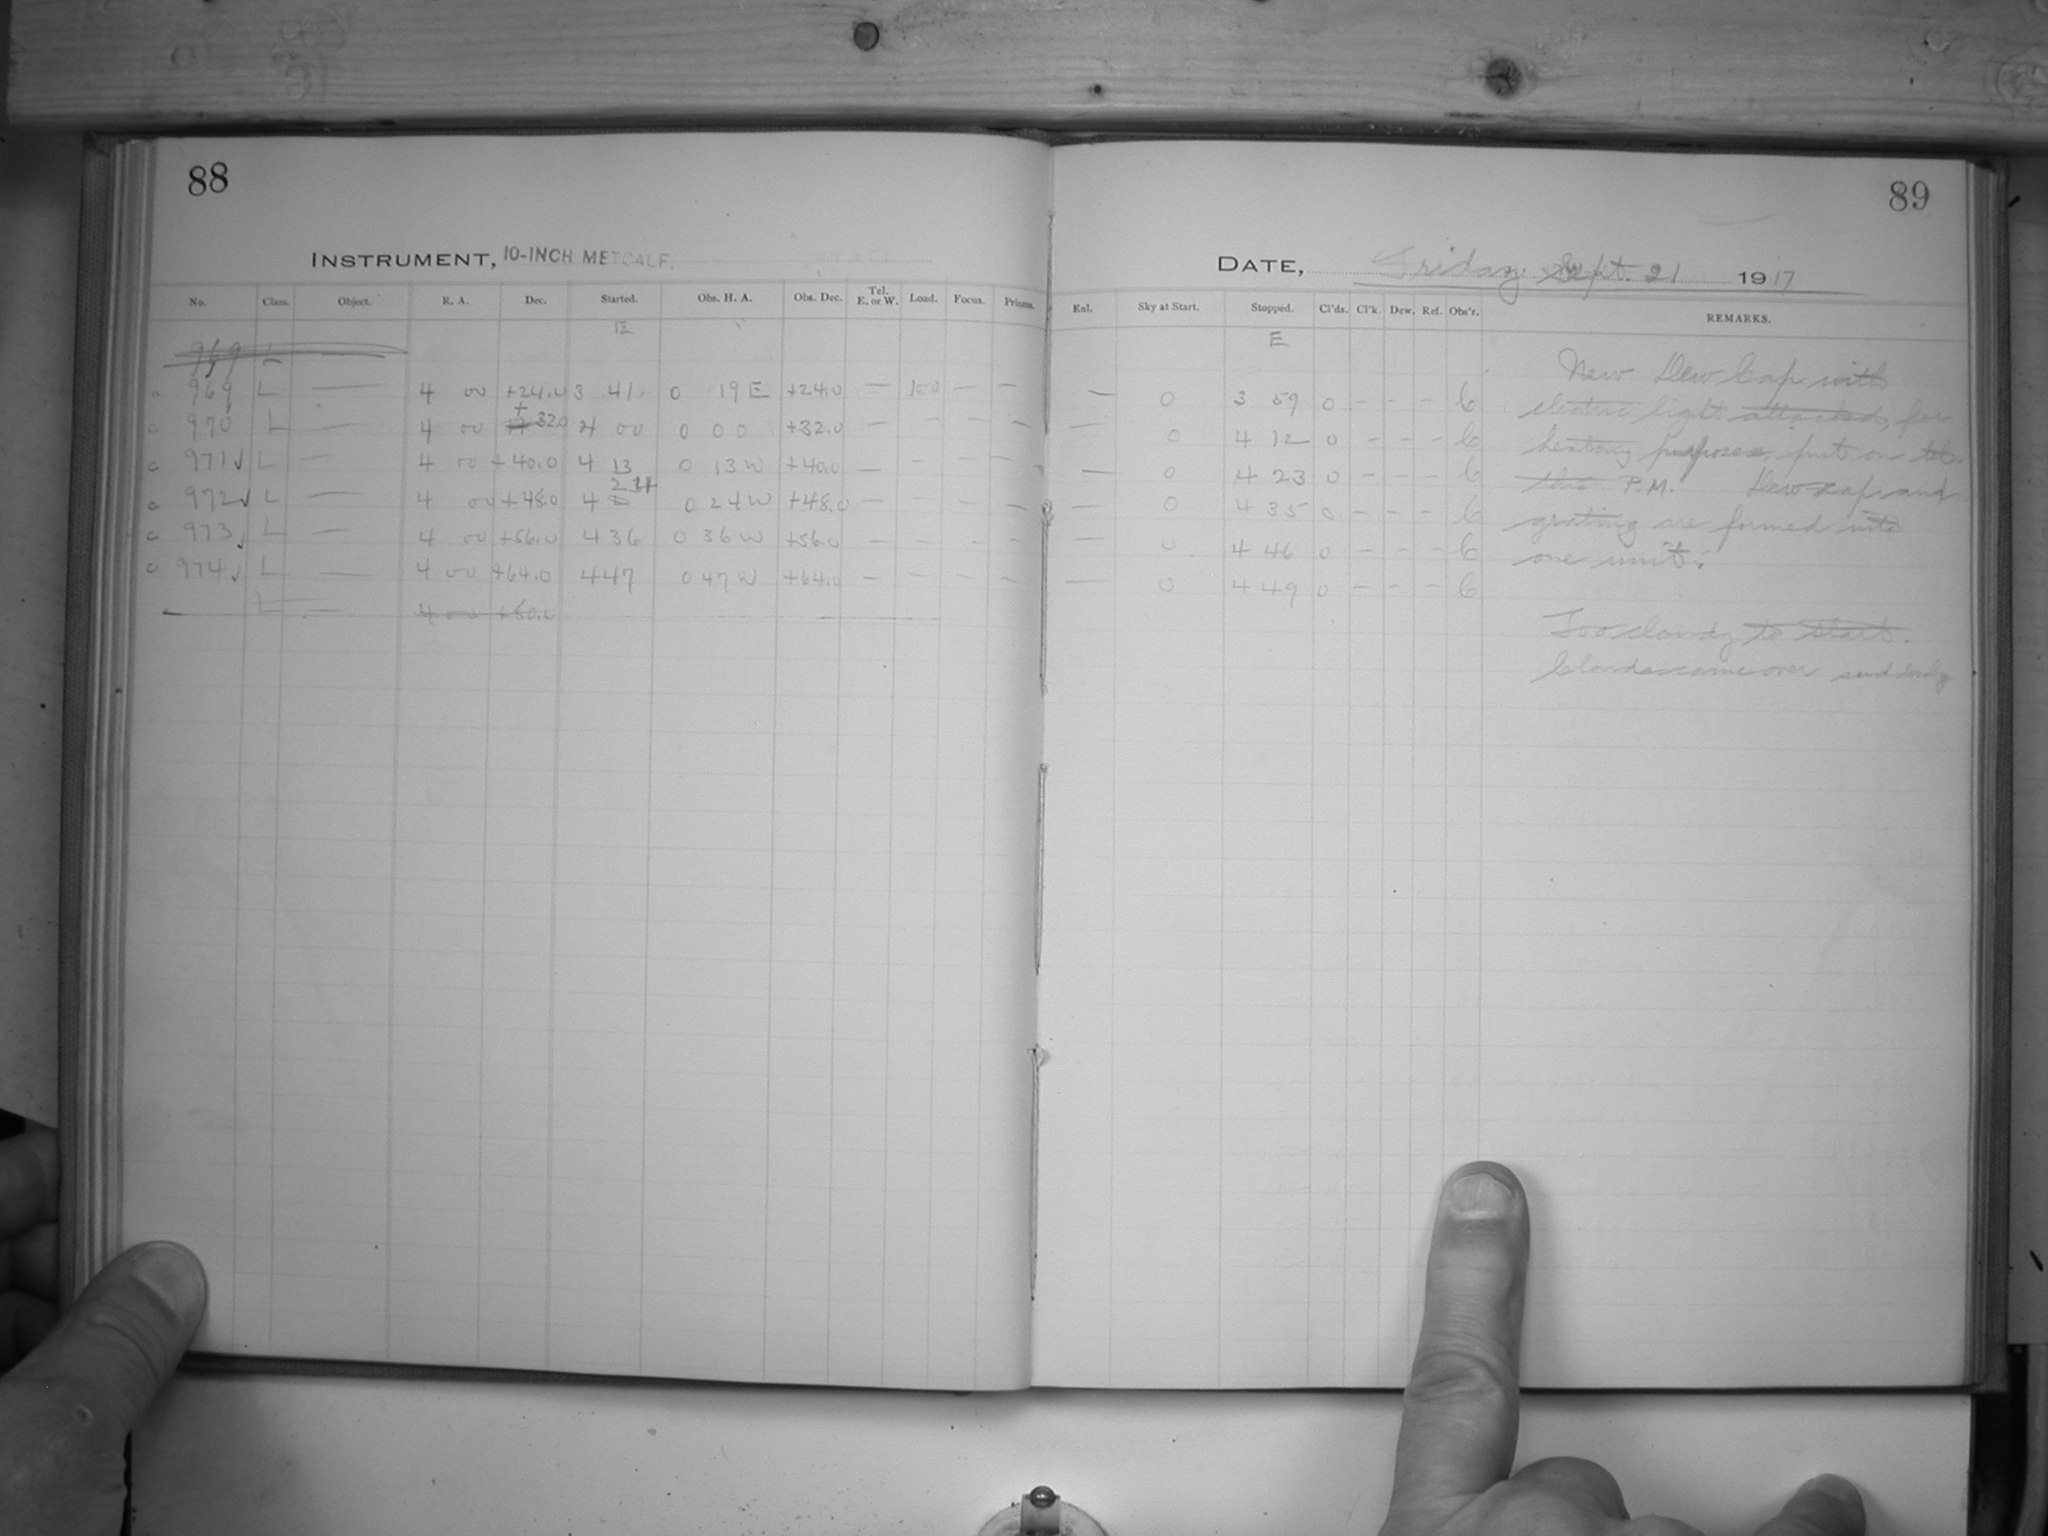 88
INSTRUMENT, 10-INCH METCALF.
No. Class. Object. R. A. Dec. Started. Obs. H. A. Obs. Dec. Tel. E. or W. Load. Focus. Prisms.
E
969 L
969 L — 4 00 +24.0 3 41 0 19 E +24.0 — — —
970 L — 4 00 + 32.0 4 00 0 0 0 +32.0 — — — —
971 ✓ L — 4 00 +40.0 4 13 0 13 W +40.0 — — — —
972 ✓ L — 4 00 +48.0 4 24 0 24 W +48.0 — — — —
973 ✓ L — 4 00 +56.0 4 36 0 36 W +56.0 — — — —
974 ✓ L — 4 00 +64.0 4 47 0 47 W +64.0 — — — —
L — 4 00 +80.0
89
DATE, Friday. Sept. 21 1917
Enl. Sky at Start. Stopped. Cl'ds. Cl'k. Dew. Ref. Obs'r. REMARKS.
E
— 0 3 59 0 - - - C
— 0 4 12 0 - - - C
— 0 4 23 0 - - - C
— 0 4 35 0 - - - C
— 0 4 46 0 - - - C
— 0 4 49 0 - - - C
New Dew Cap with
electric light attached, for
heating purposes, put on tel.
this P.M. Dew cap and
grating are formed into
one unit.
Too cloudy to start.
Clouds came over suddenly